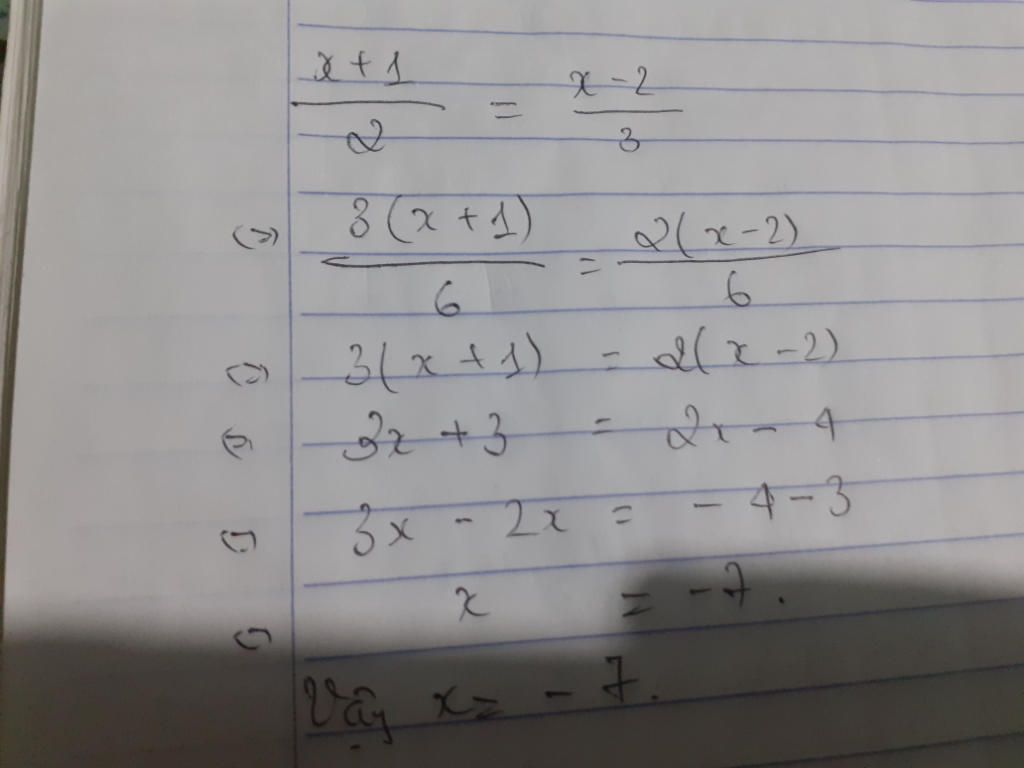 x + 1 / 2 = x - 2 / 3
<=> 3(x + 1) / 6 = 2(x - 2) / 6
<=> 3(x + 1) = 2(x - 2)
<=> 3x + 3 = 2x - 4
<=> 3x - 2x = - 4 - 3
<=> x = - 7.
Vậy x = - 7.